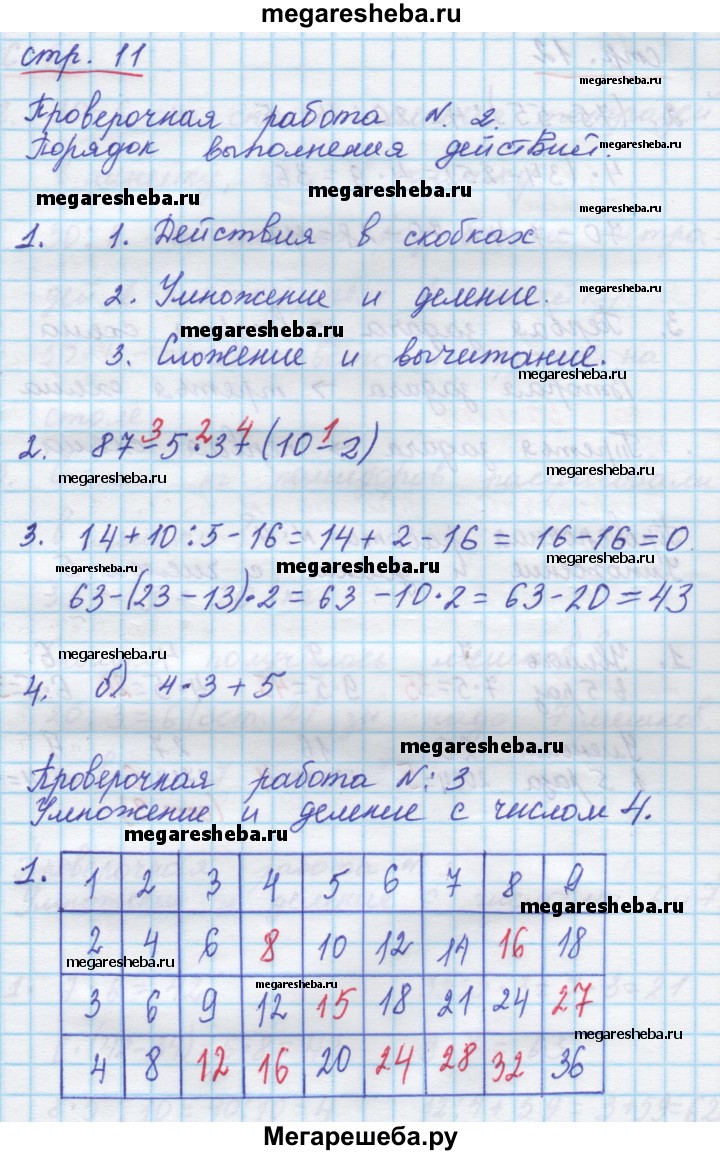 megaresheba.ru
стр. 11
megaresheba.ru
Проверочная работа №. 2.
Порядок выполнения действий.
megaresheba.ru
megaresheba.ru
1. 1. Действия в скобках
2. Умножение и деление.
megaresheba.ru
megaresheba.ru
3. Сложение и вычитание.
megaresheba.ru
3 2 4 1
2. 87-5·3+(10-2)
megaresheba.ru
megaresheba.ru
3. 14+10:5-16=14+2-16=16-16=0
megaresheba.ru
megaresheba.ru
megaresheba.ru
63-(23-13)·2=63-10·2=63-20=43
megaresheba.ru
4. б) 4·3+5
megaresheba.ru
Проверочная работа №: 3
Умножение и деление с числом 4.
megaresheba.ru
1. 1 2 3 4 5 6 7 8 9
megaresheba.ru
2 4 6 8 10 12 14 16 18
megaresheba.ru
megaresheba.ru
3 6 9 12 15 18 21 24 27
megaresheba.ru
4 8 12 16 20 24 28 32 36
Мегарешеба.ру